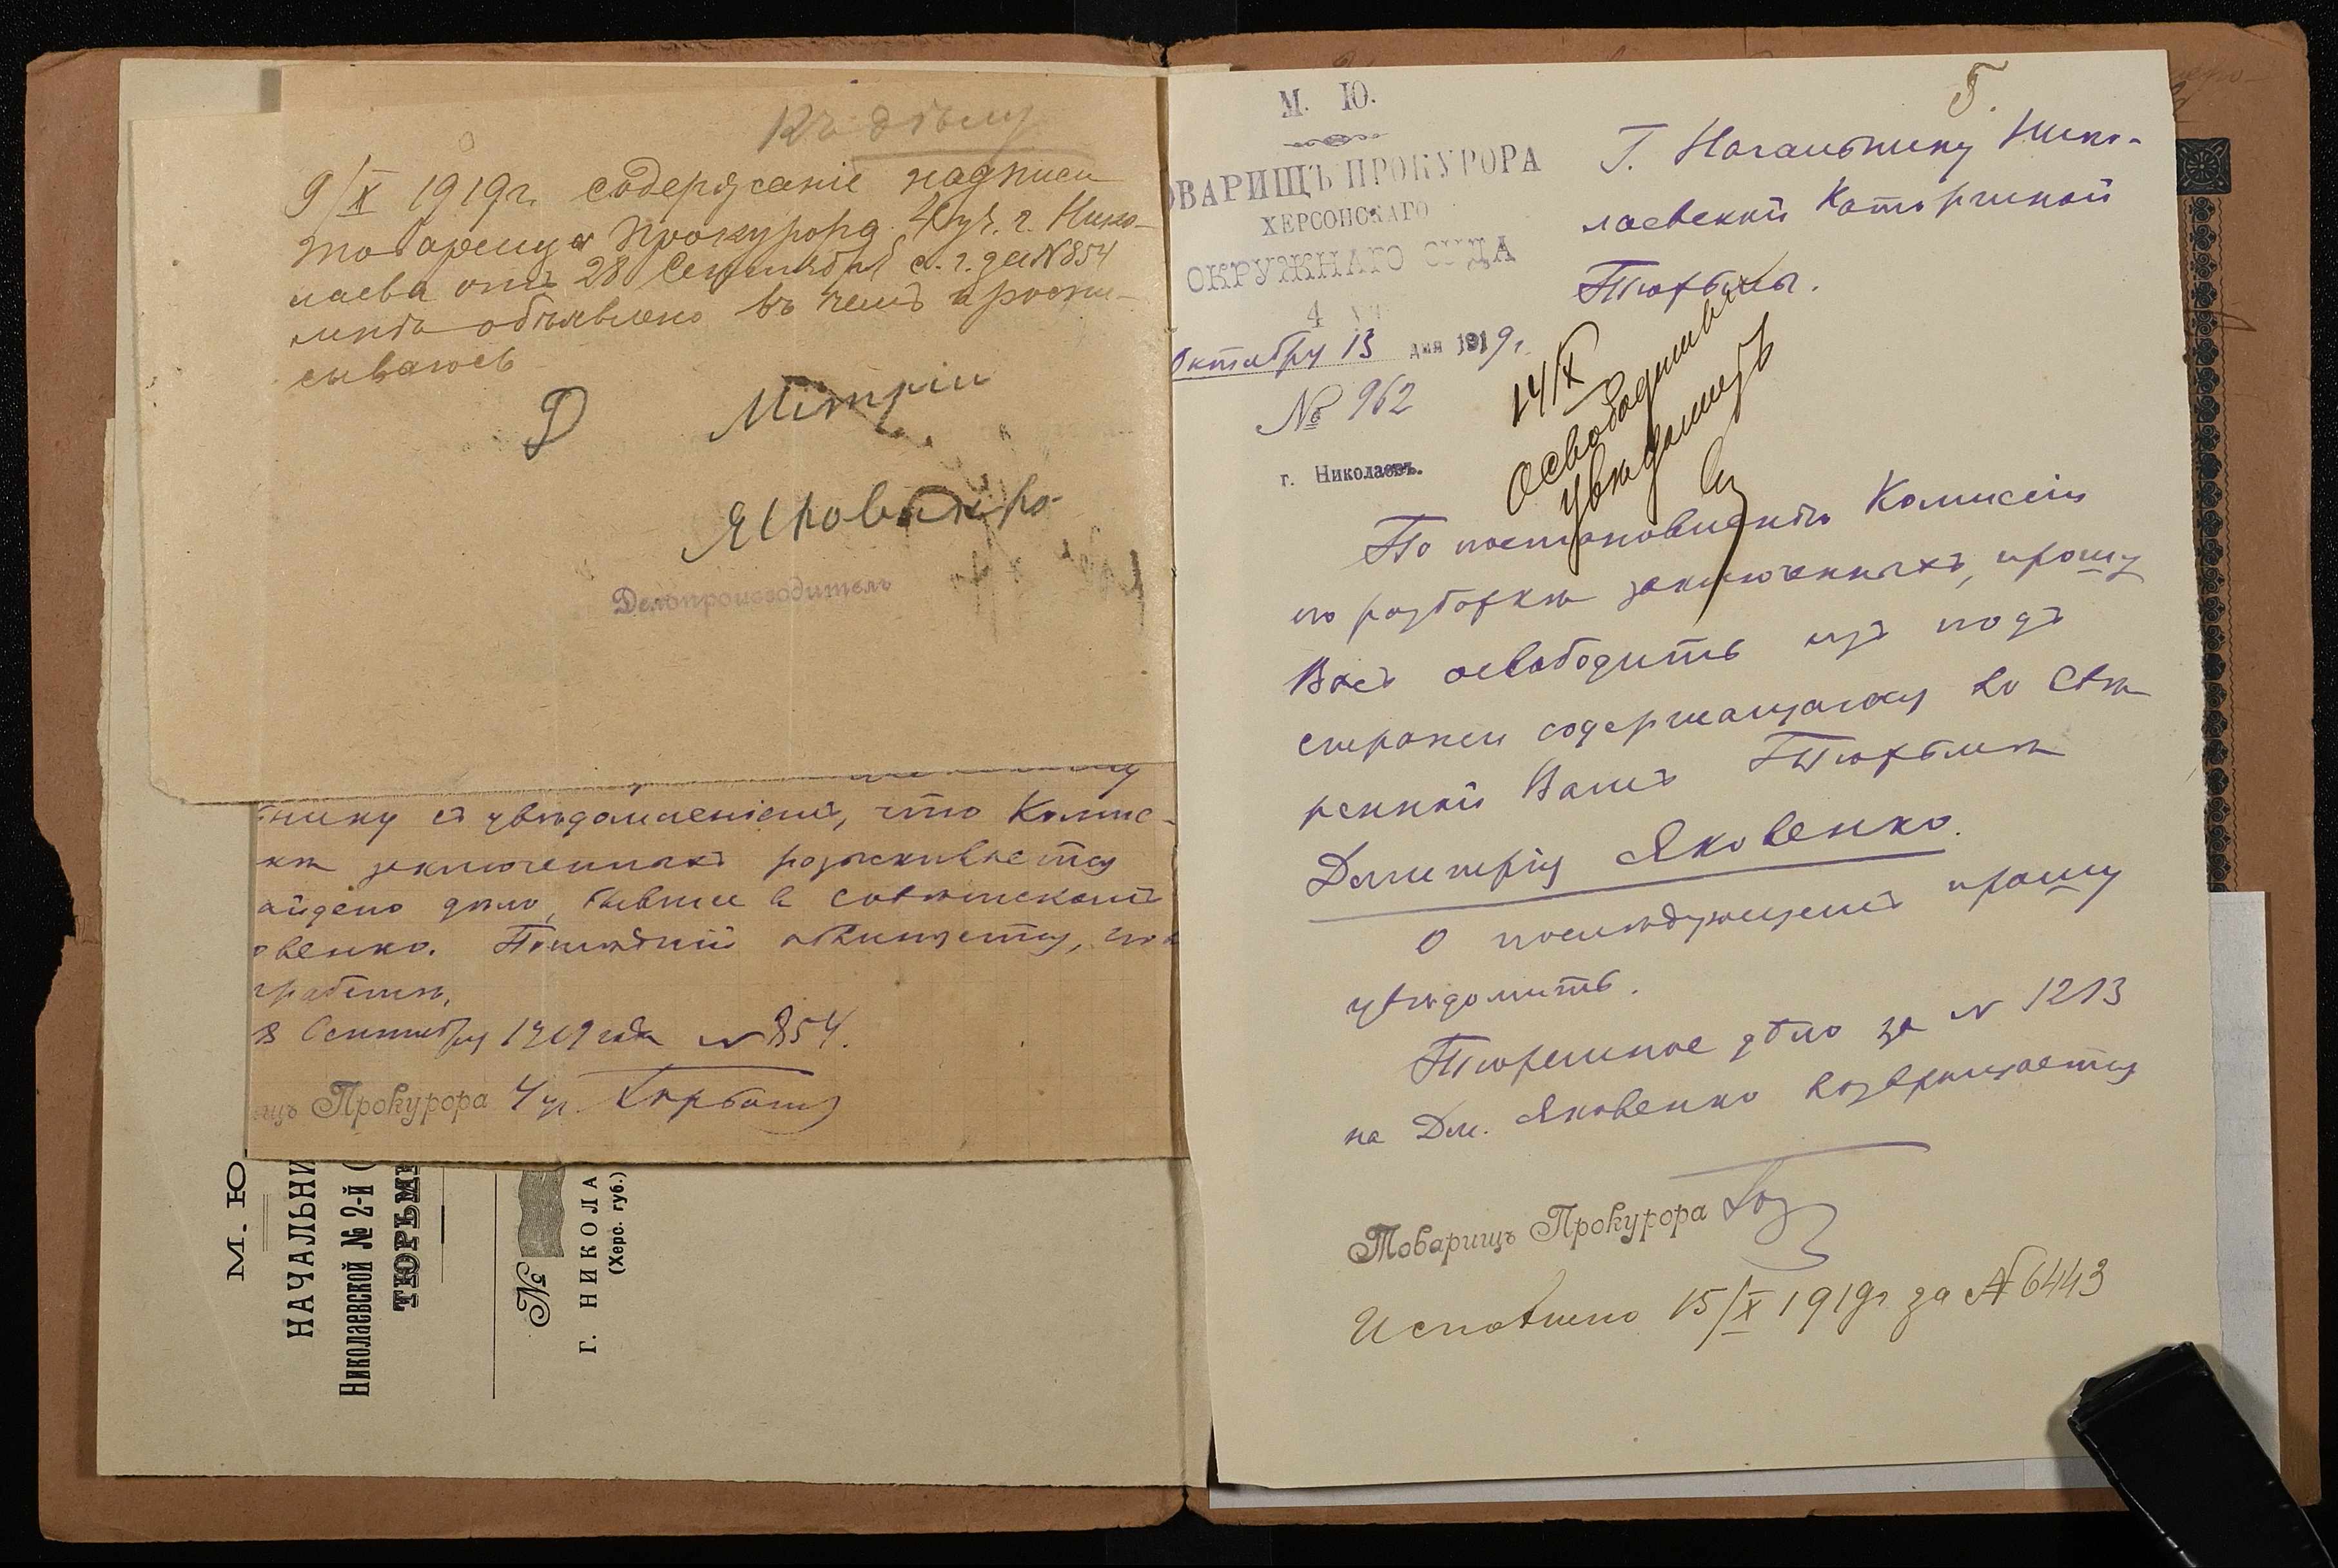 Къ дѣлу
9/X 1919г. содержаніе надписи
товарища Прокурора 4 уч. г. Нико-
лаева отъ 28 Сентября с. г. за № 854
мнѣ объявлено въ чемъ и роспи-
сываюсь
Д Мітрій
Яковенко
Делопроизводитель
нику съ увѣдомленіемъ, что Комис-
заключенныхъ розыскивается
айдено дѣло, бывшее в Советскомъ
овенко. Послѣдній обвиняется,
грабежѣ.
8 Сентября 1919 года № 854.
щъ Прокурора 4 уч.
М. Ю
НАЧАЛЬНИ
Николаевской № 2-й (
ТЮРЬМ
№
Г. НИКОЛА
(Херс. губ.)
5.
М. Ю.
ОВАРИЩЪ ПРОКУРОРА
ХЕРСОНСКАГО
ОКРУЖНАГО СУДА
4
Октября 13 дня 1919 г.
№ 962
г. Николаевъ.
Г. Начальнику Нико-
лаевской Каторжной
Тюрьмы.
14/X
Освободить
увѣдомить
По постановленію Комиссіи
по разборкѣ заключенныхъ, прошу
Васъ освободить изъ подъ
стражи содержащагося во ввѣ
ренной Вамъ Тюрьмѣ
Дмитрія Яковенко.
О послѣдующемъ прошу
увѣдомить.
Тюремное дѣло за № 1213
на Дм. Яковенко возвращается
Товарищъ Прокурора
Исполнено 15/X 1919г. за № 6443